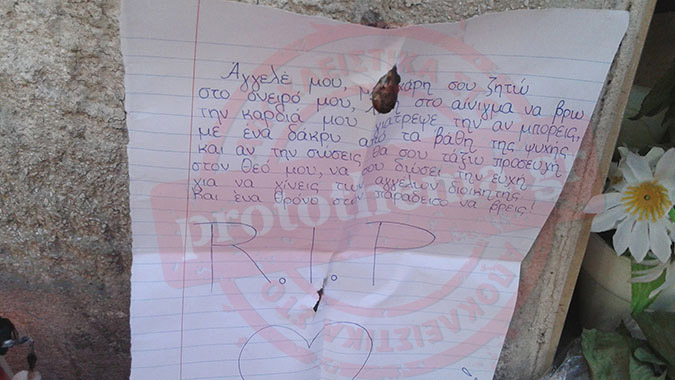 Άγγελέ μου, χάρη σου ζητώ
στο όνειρό μου, στο αίνιγμα να βρω
την καρδιά μου γιάτρεψε την αν μπορείς,
με ένα δάκρυ από τα βάθη της ψυχής
και αν την σώσεις θα σου τάξω προσευχή
στον Θεό μου, να σου δώσει την ευχή
για να γίνεις των αγγέλων διοικητής
και ένα θρόνο στον παράδεισο να βρεις!
R.I.P
protothema
ΑΠΟΚΛΕΙΣΤΙΚΑ ΣΤΟ